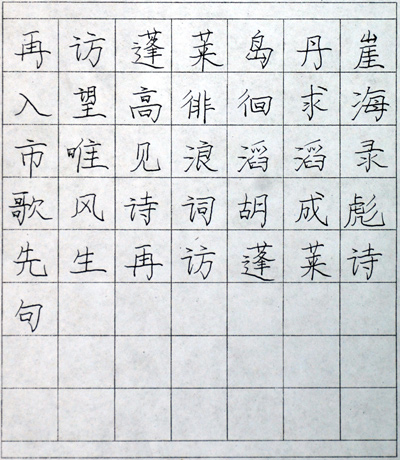 再访蓬莱岛丹崖
入望高徘徊求海
市唯见浪滔滔录
歌风诗词胡成彪
先生再访蓬莱诗
句